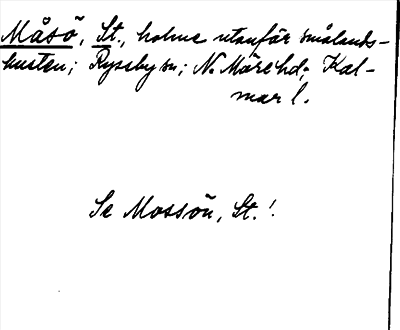 Måsö, St., holme utanför smålands-
kusten; Ryssby sn; N. Möre hd; Kal-
mar l.
Se Mossön, St.!